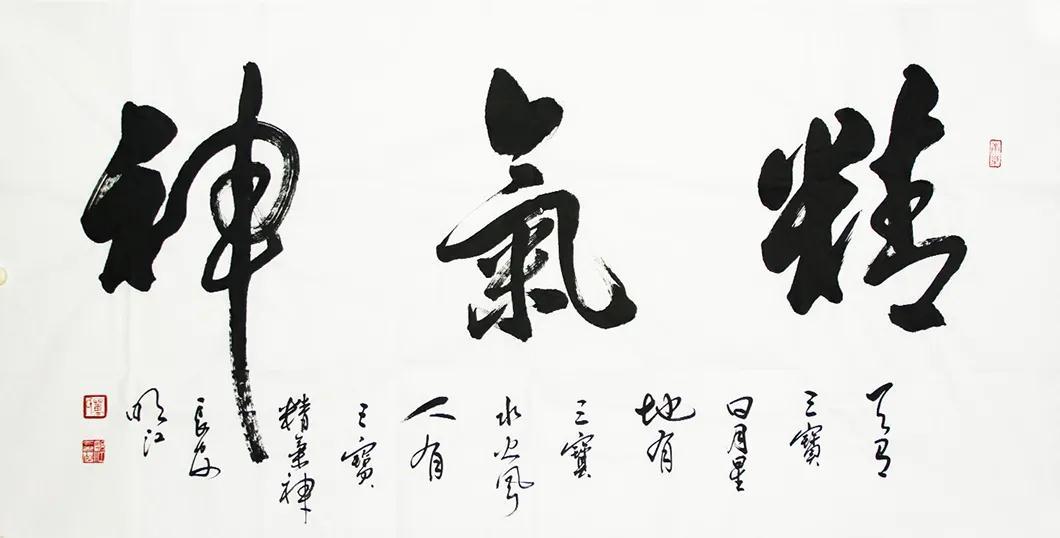 精氣神
天有
三寶
日月星
地有
三寶
水火風
人有
三寶
精氣神
長安
明江